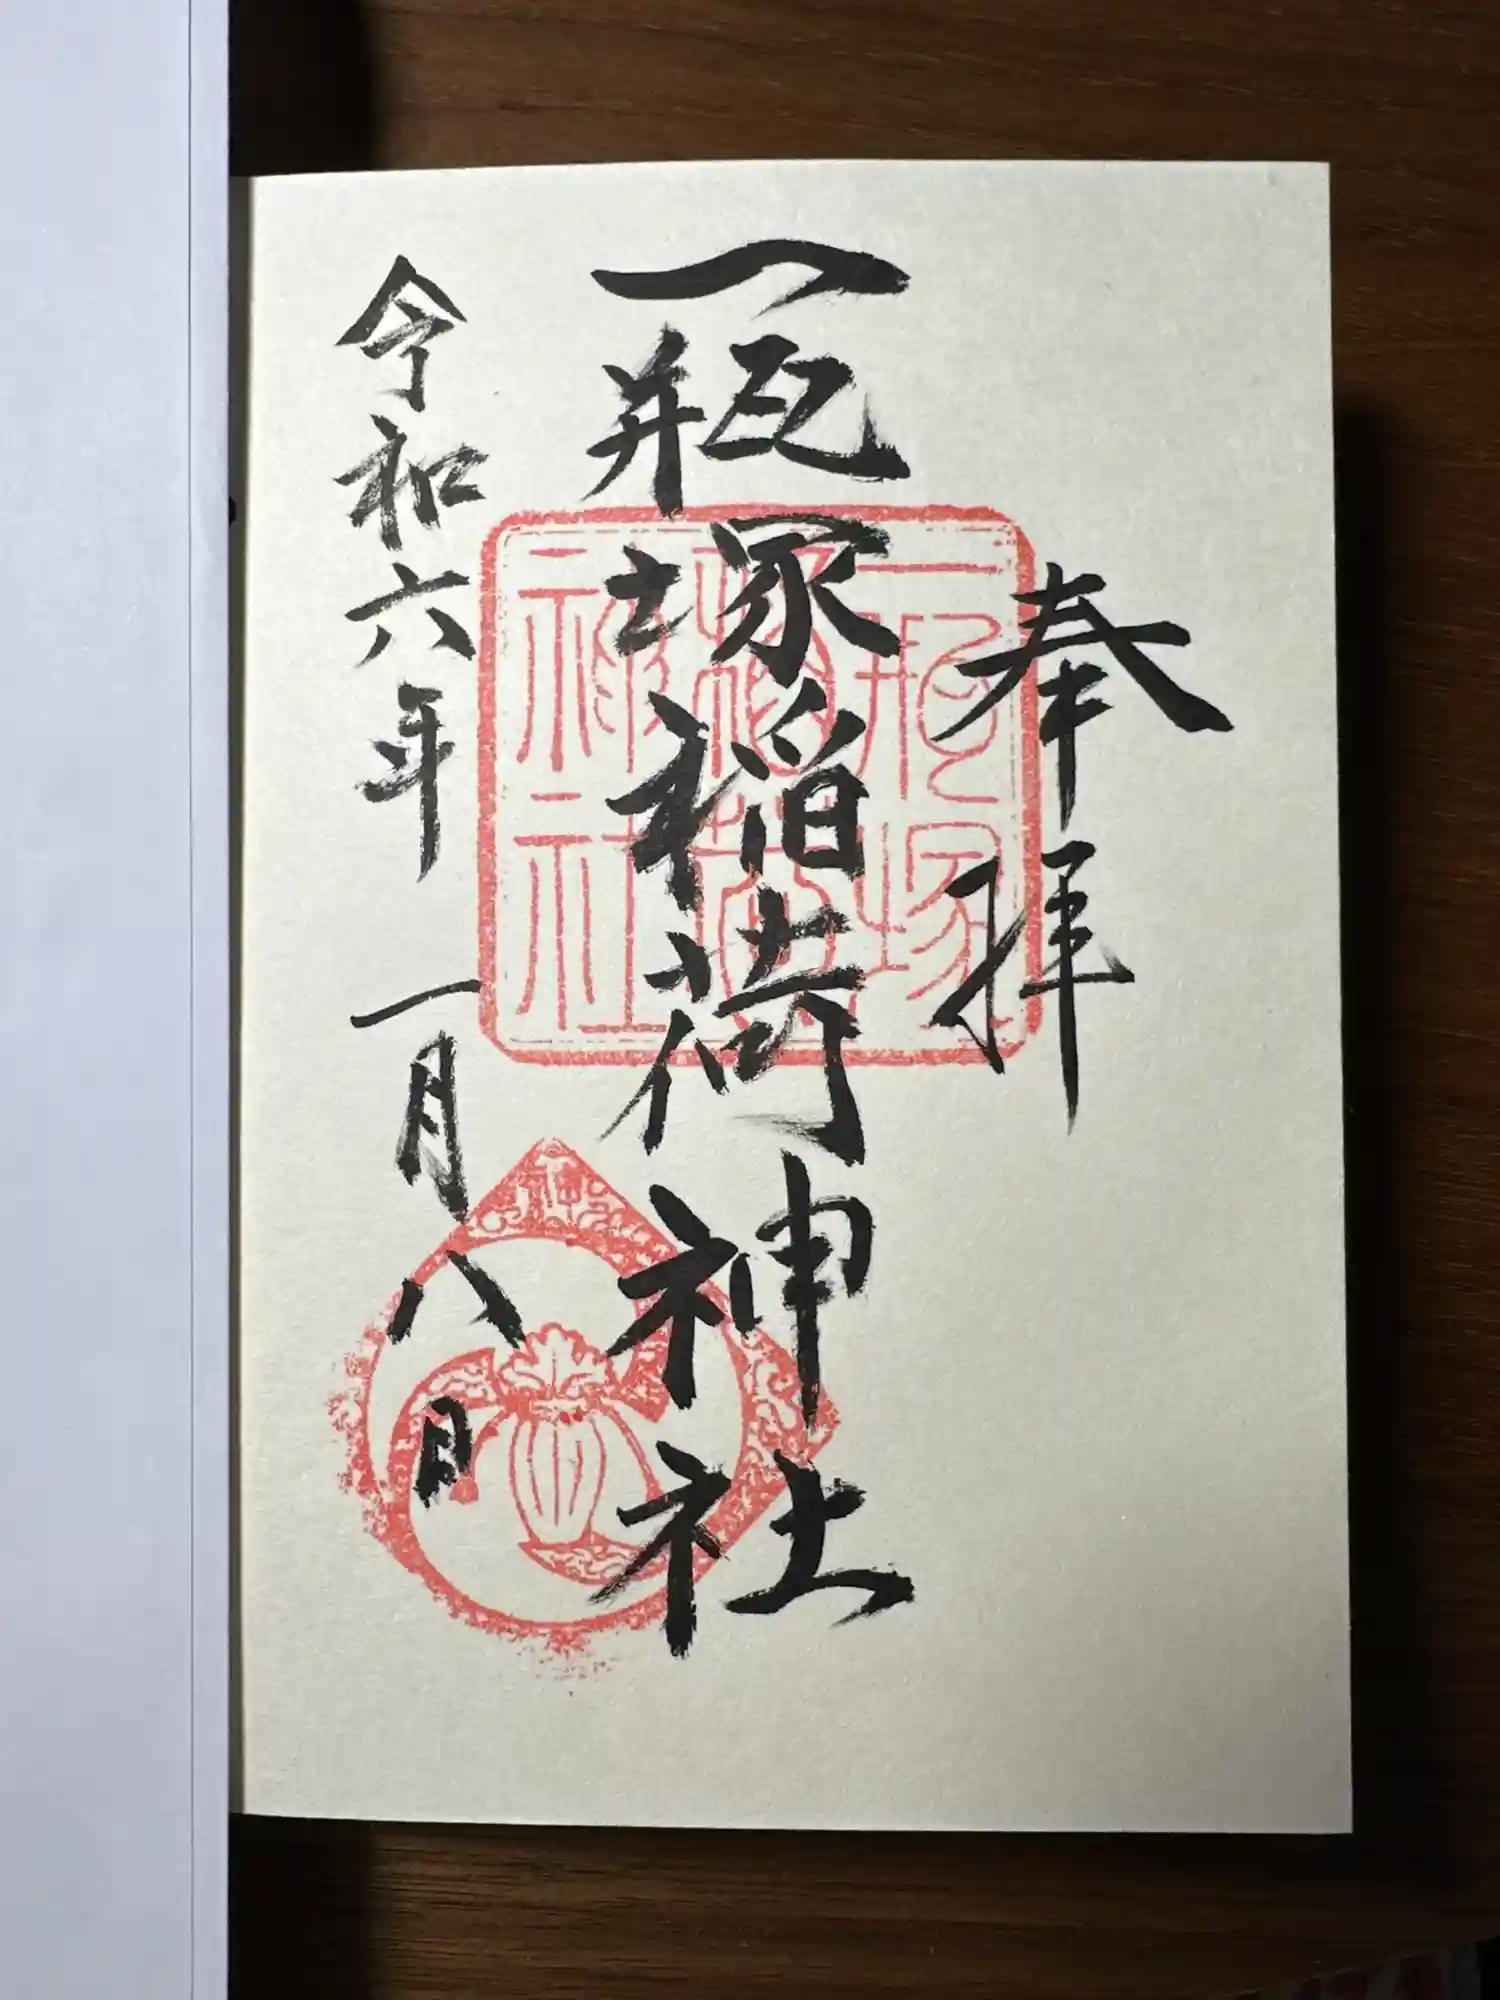 奉拝
一瓶塚稲荷神社
令和六年一月八日